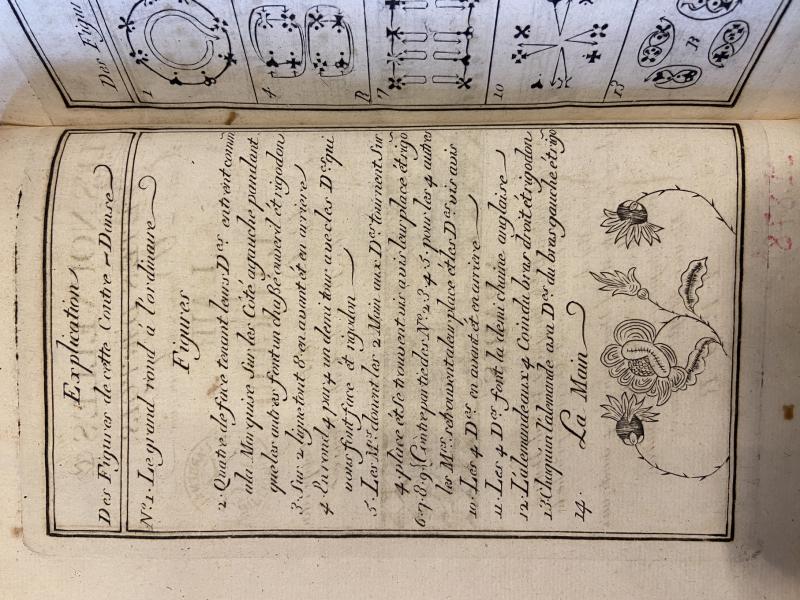 Explication
Des Figures de cette Contre-Danse
No. 1. Le grand rond à l'ordinaire
Figures
2. Quatre de face tenant leurs Des. entrent com̃
a la Marquise Sur les Coté a gauche pandant
que les autres font un chassé ouverd et rigodon
3. Sur 2 ligne tout 8 en avant et en arriere
4. En rond 4 par 4 un demi tour avec les Des. qui
vous font face et rigdon
5. Les Mrs. donent les 2 Main aux Des. tournent Sur
4 place et se trouvent vis avis leur place et rigo
6. 7. 8. 9. Contre partie des No. 2. 3. 4. 5. pour les 4 autres
les Mrs. retrouvent leur place et les Des. vis avis
10. Les 4 Des. en avant et en arriere
11. Les 4 Des. font la demi chaine anglaise
12. L'alemande aux 4 Coin du bras droit et rigodon
13. Chaqu'un l'alemande a sa Des. du bras gauche et rigo
14. La Main
Des Figu
1
4
7
10
13
R
R